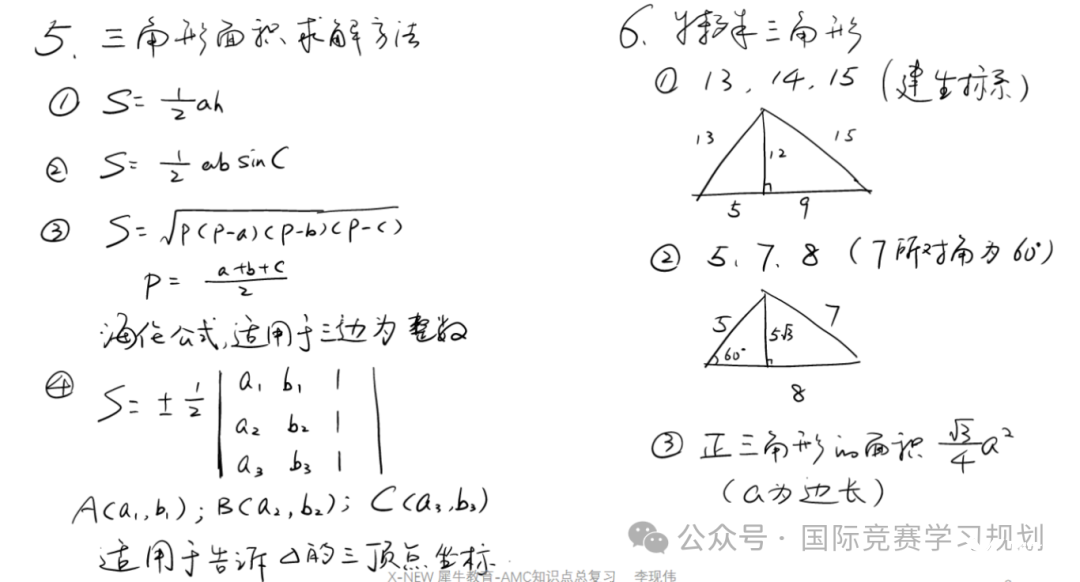 5. 三角形面积求解方法
① S= 1/2 ah
② S= 1/2 ab sinC
③ S= √P(P-a)(P-b)(P-c)
P= a+b+c/2
海伦公式,适用于三边为整数
④ S= ± 1/2 | a₁ b₁ 1 |
a₂ b₂ 1
a₃ b₃ 1
A(a₁,b₁); B(a₂,b₂); C(a₃,b₃)
适用于告诉△的三顶点坐标.
6. 特殊三角形
① 13, 14, 15 (建坐标系)
13
15
12
5
9
② 5、7、8 (7所对角为60°)
5
7
5√3
60°
8
③ 正三角形的面积 √3/4 a²
(a为边长)
公众号·国际竞赛学习规划
X-NEW 犀牛教育-AMC知识点总复习 李现伟